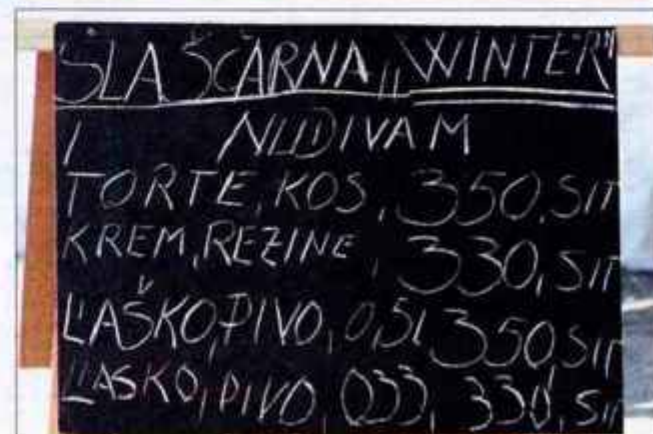 SLAŠČARNA „WINTER"
NUDIVAM
TORTE, KOS, 350, SIT
KREM, REZINE, 330, SIT
LAŠKO, PIVO, 0,5l 350, SIT
LASKO, PIVO, 033, 330, SIT